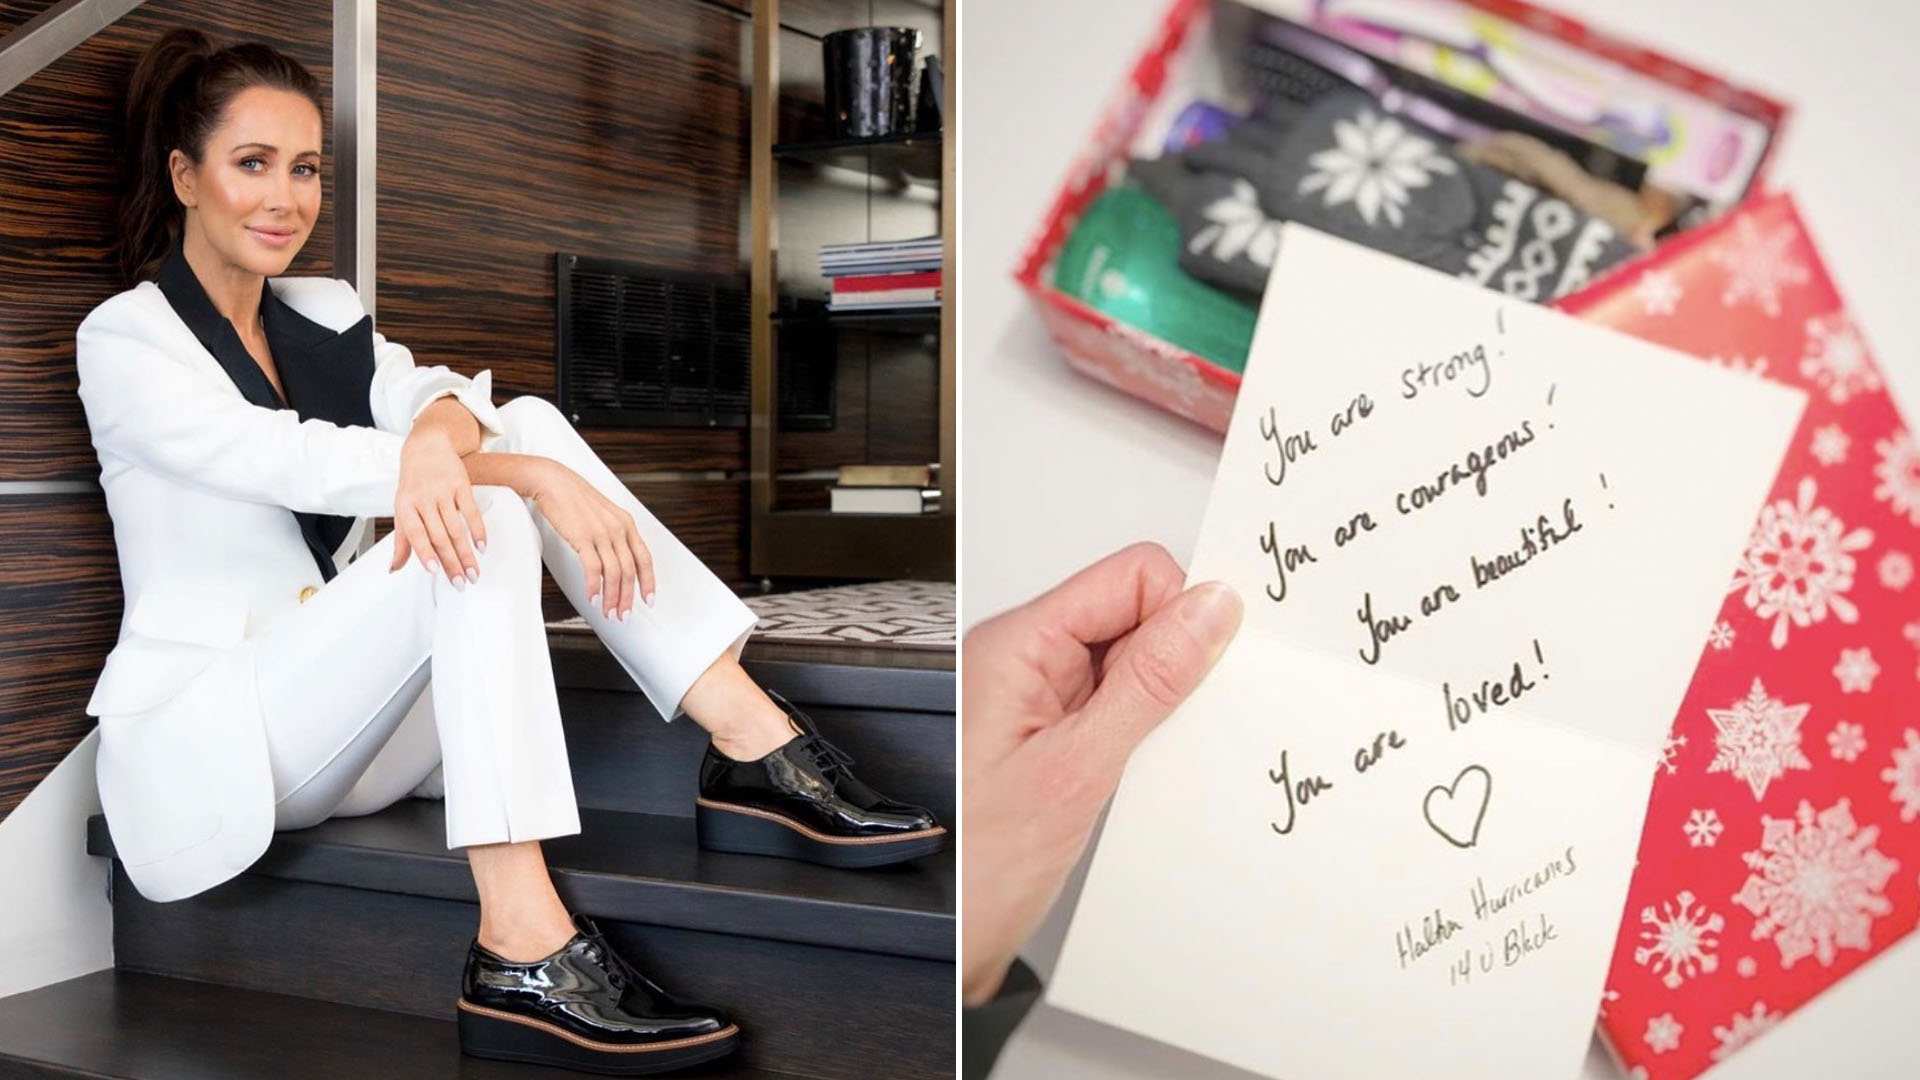 You are strong!
You are courageous!
You are beautiful!
You are loved!
Halton Hurricanes
14 U Black